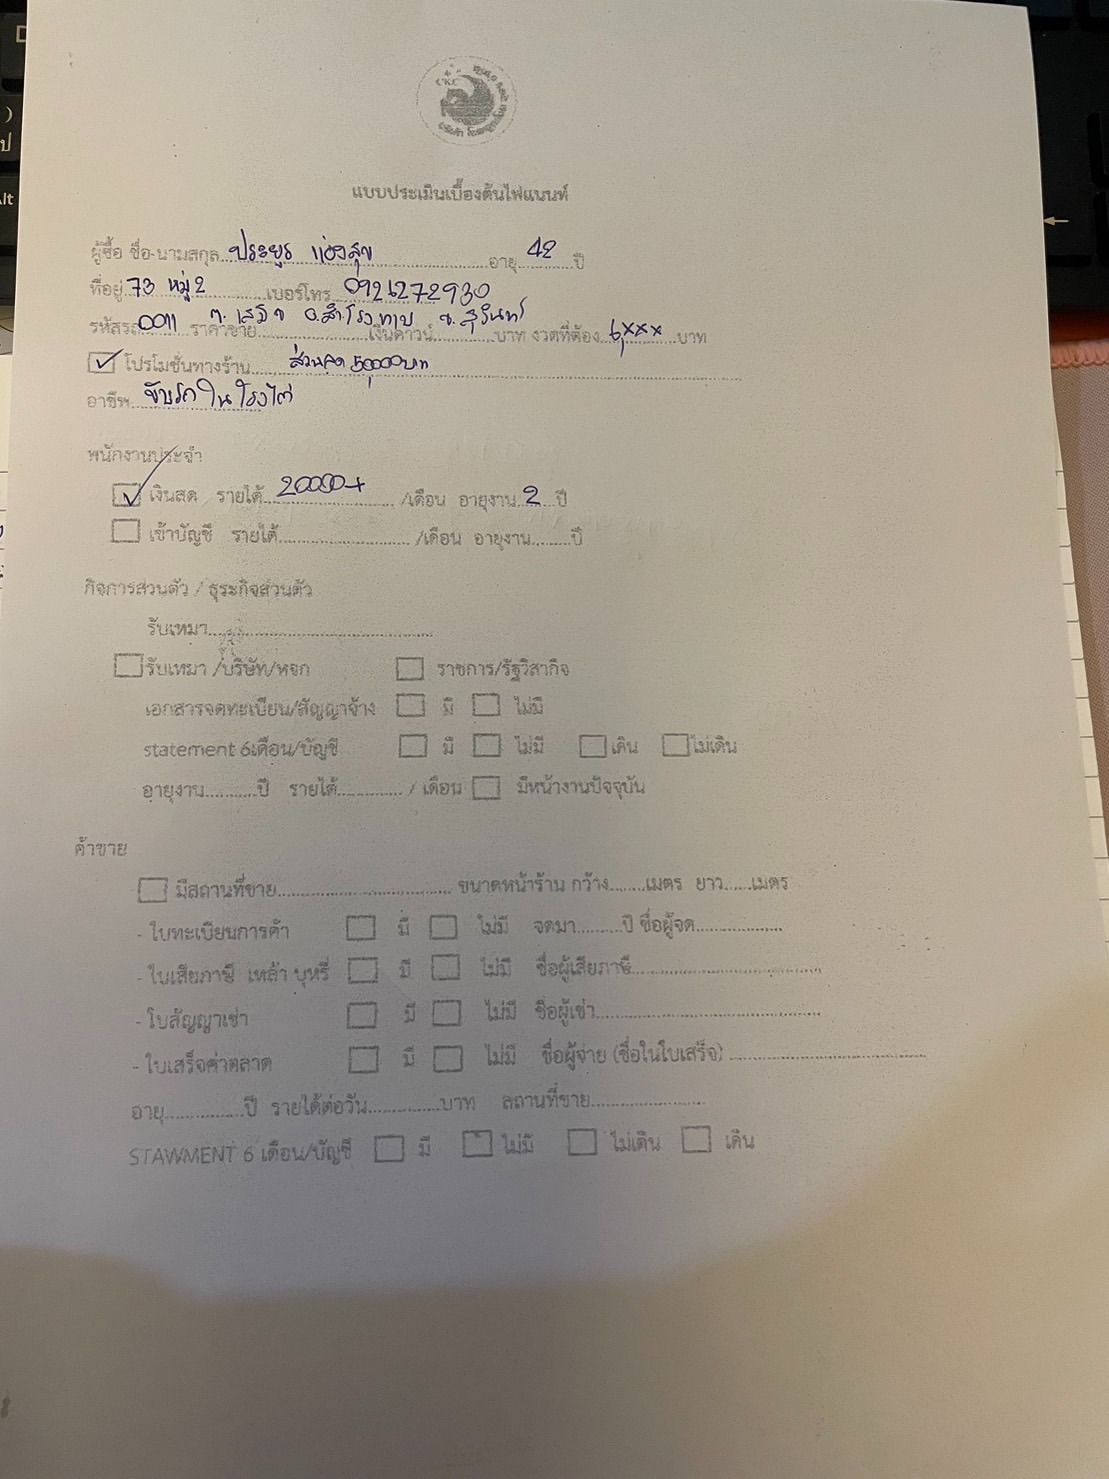 CKC
แบบประเมินเบื้องต้นไฟแนนท์
ผู้ซื้อ ชื่อ-นามสกุล ประยูร แข่งสุข อายุ 42 ปี
ที่อยู่ 73 หมู่ 2 เบอร์โทร 0921272930
ต.เสม็จ อ.สำโรงทาบ จ.สุรินทร์
รหัสรถ 0011 ราคาขาย เงินดาวน์ บาท งวดที่ต้อง 6,xxx บาท
โปรโมชั่นทางร้าน ส่วนลด 50,000 บาท
อาชีพ ขับรถในโรงไก่
พนักงานประจำ
เงินสด รายได้ 20000+ /เดือน อายุงาน 2 ปี
เข้าบัญชี รายได้ /เดือน อายุงาน ปี
กิจการส่วนตัว / ธุระกิจส่วนตัว
รับเหมา
รับเหมา /บริษัท/หจก ราชการ/รัฐวิสากิจ
เอกสารจดทะเบียน/สัญญาจ้าง มี ไม่มี
statement 6เดือน/บัญชี มี ไม่มี เดิน ไม่เดิน
อายุงาน ปี รายได้ / เดือน มีหน้างานปัจจุบัน
ค้าขาย
มีสถานที่ขาย ขนาดหน้าร้าน กว้าง เมตร ยาว เมตร
- ใบทะเบียนการค้า มี ไม่มี จดมา ปี ชื่อผู้จด
- ใบเสียภาษี เหล้า บุหรี่ มี ไม่มี ชื่อผู้เสียภาษี
- ใบสัญญาเช่า มี ไม่มี ชื่อผู้เช่า
- ใบเสร็จค่าตลาด มี ไม่มี ชื่อผู้จ่าย (ชื่อในใบเสร็จ)
อายุ ปี รายได้ต่อวัน บาท สถานที่ขาย
STAWMENT 6 เดือน/บัญชี มี ไม่มี ไม่เดิน เดิน